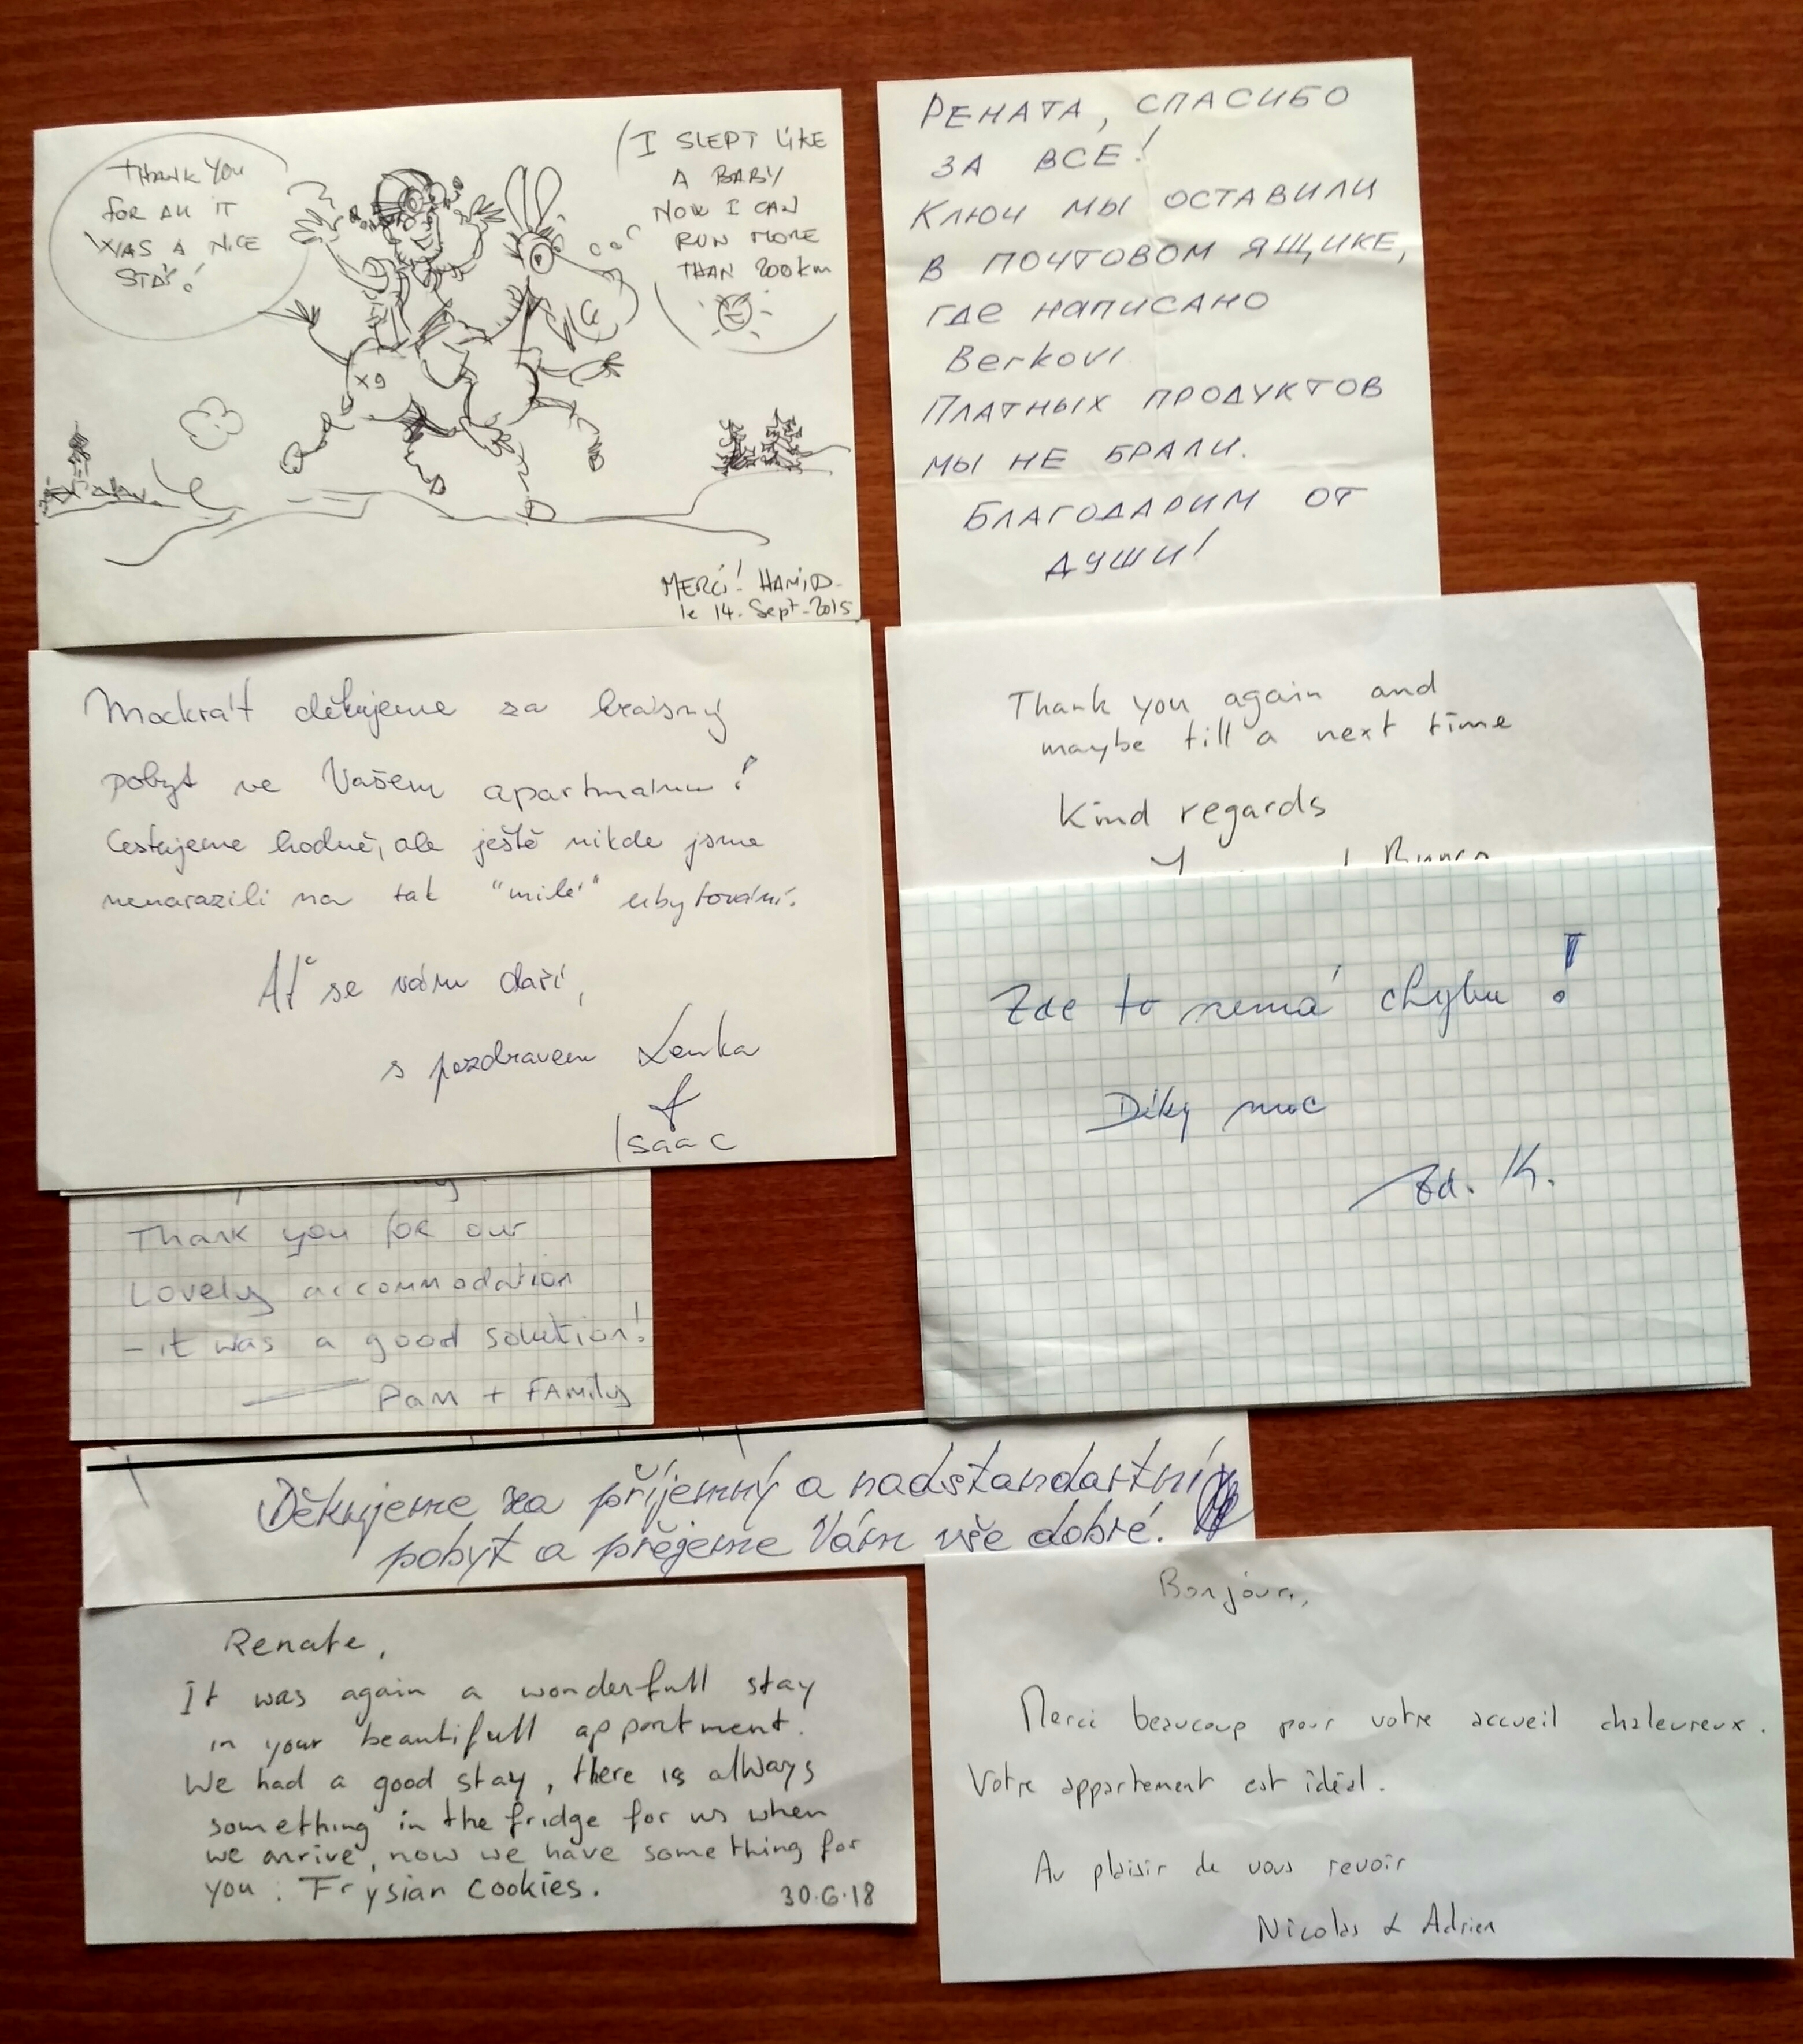 THANK YOU
FOR All IT
WAS A NICE
STAY!
I SLEPT LIKE
A BABY
NOW I CAN
RUN MORE
THAN 200km
x9
MERCI! HAMID
le 14. Sept-2015
РЕНАТА, СПАСИБО
ЗА ВСЕ!
КЛЮЧ МЫ ОСТАВИЛИ
В ПОЧТОВОМ ЯЩИКЕ,
ГДЕ НАПИСАНО
Berkovi
ПЛАТНЫХ ПРОДУКТОВ
МЫ НЕ БРАЛИ.
БЛАГОДАРИМ ОТ
ДУШИ!
Mockrát děkujeme za krásný
pobyt ve Vašem apartmánu!
Cestujeme hodně, ale ještě nikde jsme
nenarazili na tak "milé" ubytování.
Ať se vám daří,
s pozdravem Lenka
&
Isaac
Thank you again and
maybe till a next time
Kind regards
Zde to nemá chybu!
Díky moc
Zd. K.
Thank you for our
Lovely accommodation
- it was a good solution!
Pam + FAMily
Děkujeme za příjemný a nadstandartní
pobyt a přejeme Vám vše dobré.
Renate,
It was again a wonderfull stay
in your beautifull appartment.
We had a good stay, there is allways
something in the fridge for us when
we arrive, now we have something for
you: Frysian cookies.
30.6.18
Bonjour,
Merci beaucoup pour votre accueil chaleureux.
Votre appartement est idéal.
Au plaisir de vous revoir
Nicolas & Adrien